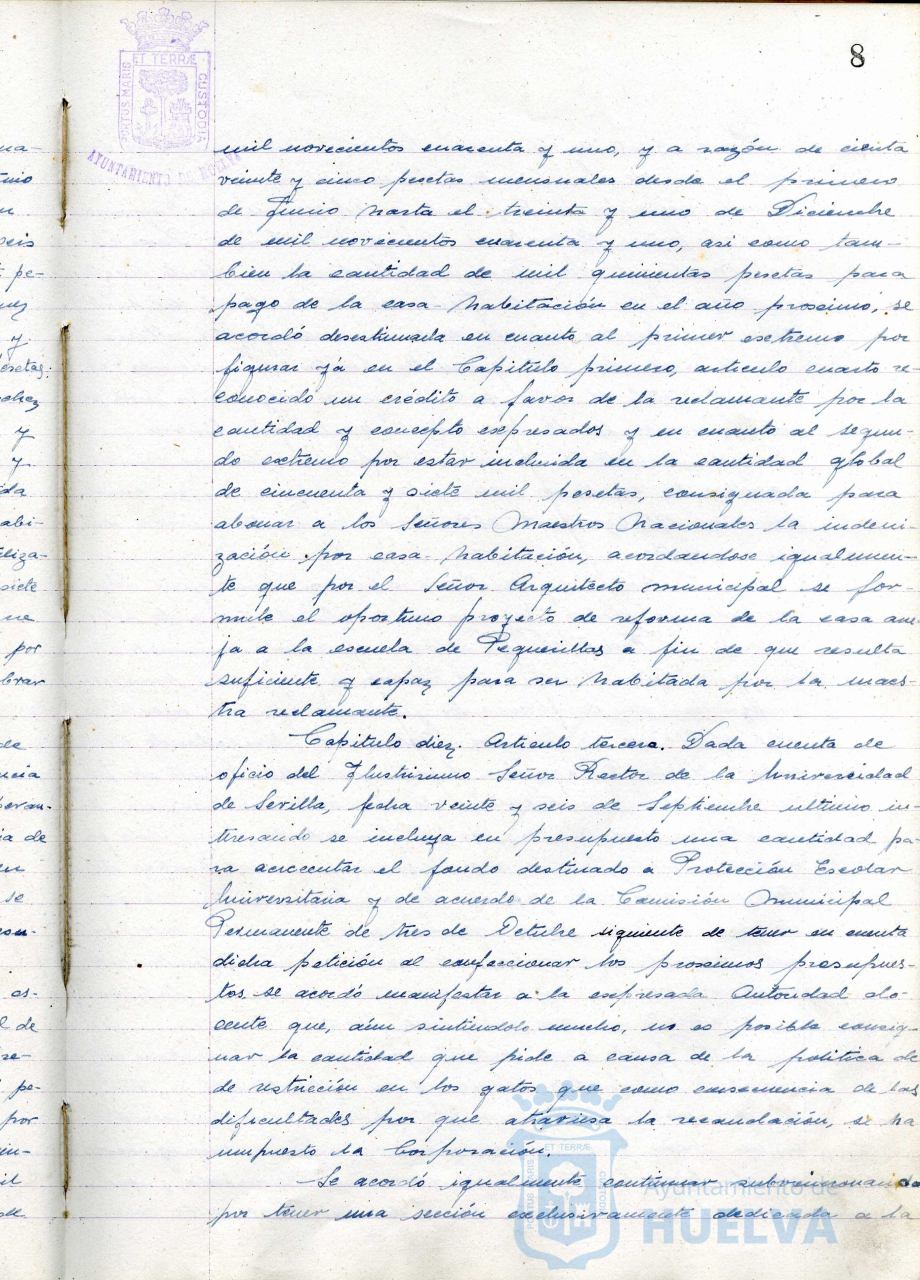 8
PORTUS MARIS
ET TERRÆ
CUSTODIA
AYUNTAMIENTO DE HUELVA
mil novecientos cuarenta y uno, y a razón de cienta
veinte y cinco pesetas mensuales desde el primero
de Junio hasta el treinta y uno de Diciembre
de mil novecientos cuarenta y uno, asi como tam-
bien la cantidad de mil quinientas pesetas para
pago de la casa-habitación en el año proximo, se
acordó desestimarla en cuanto al primer extremo por
figurar yá en el Capitulo primero, articulo cuarto re-
conocido un crédito a favor de la reclamante por la
cantidad y concepto expresados y en cuanto al segun-
do extremo por estar incluida en la cantidad global
de cincuenta y siete mil pesetas, consignada para
abonar a los Señores Maestros Nacionales la indemi-
zación por casa-habitución, acordandose igualmen-
te que por el Señor Arquitecto municipal se for-
mule el oportuno proyecto de reforma de la casa ane-
ja a la escuela de Peguerillas a fin de que resulta
suficiente y capaz para ser habitada por la maes-
tra reclamante.
Capitulo diez. Articulo tercero. Dada cuenta de
oficio del Ilustrisimo Señor Rector de la Universidad
de Sevilla, fecha veinte y seis de Septiembre ultimo in-
tresando se incluya en presupuesto una cantidad pa-
ra acrecentar el fondo destinado a Protección Escolar
Universitaria y de acuerdo de la Comisión Municipal
Permanente de tres de Octubre siguiente de tener en cuenta
dicha petición al confeccionar los proximos presupues-
tos se acordó manifestar a la expresada Autoridad do-
cente que, aún sintiéndolo mucho, no es posible consig-
nar la cantidad que pide a causa de la politica de
de restricción en los gatos que como consecuencia de las
dificultades por que atraviesa la recaudación, se ha
impuesto la Corporación.
Se acordó igualmente continuar subvencionando
por tener una sección exclusivamente dedicada a la
Ayuntamiento de
HUELVA